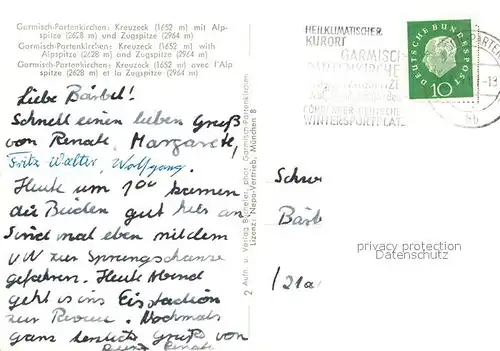 Garmisch-Partenkirchen: Kreuzeck (1652 m) mit Alp-
spitze (2628 m) und Zugspitze (2964 m)
Garmisch-Partenkirchen: Kreuzeck (1652 m) with
Alpspitze (2628 m) and Zugspitze (2964 m)
Garmisch-Partenkirchen: Kreuzeck (1652 m) avec l'Alp
spitze (2628 m) et la Zugspitze (2964 m)
Liebe Bärbel!
Schnell einen lieben Gruß
von Renate, Margarete,
Fritz-Walter, Wolfgang.
Heute um 1 00 kamen
die Beiden gut hier an
Sind mal eben mit dem
VW zur Sprungschanze
gefahren. Heute Abend
geht es ins Eisstadion
zur Revue. Nochmals
ganz herzliche Grüße von
Renate
2 Aufn. u. Verlag Beckert, phot. Garmisch-Partenkirchen
Lizenz: Nepa-Vertrieb, München 8
HEILKLIMATISCHER
KURORT
GARMISCH
PARTENKIRCHEN
WINTERSPORTPLATZ
DEUTSCHE BUNDESPOST
10
Schwe
Bärb
/21a
privacy protection
Datenschutz